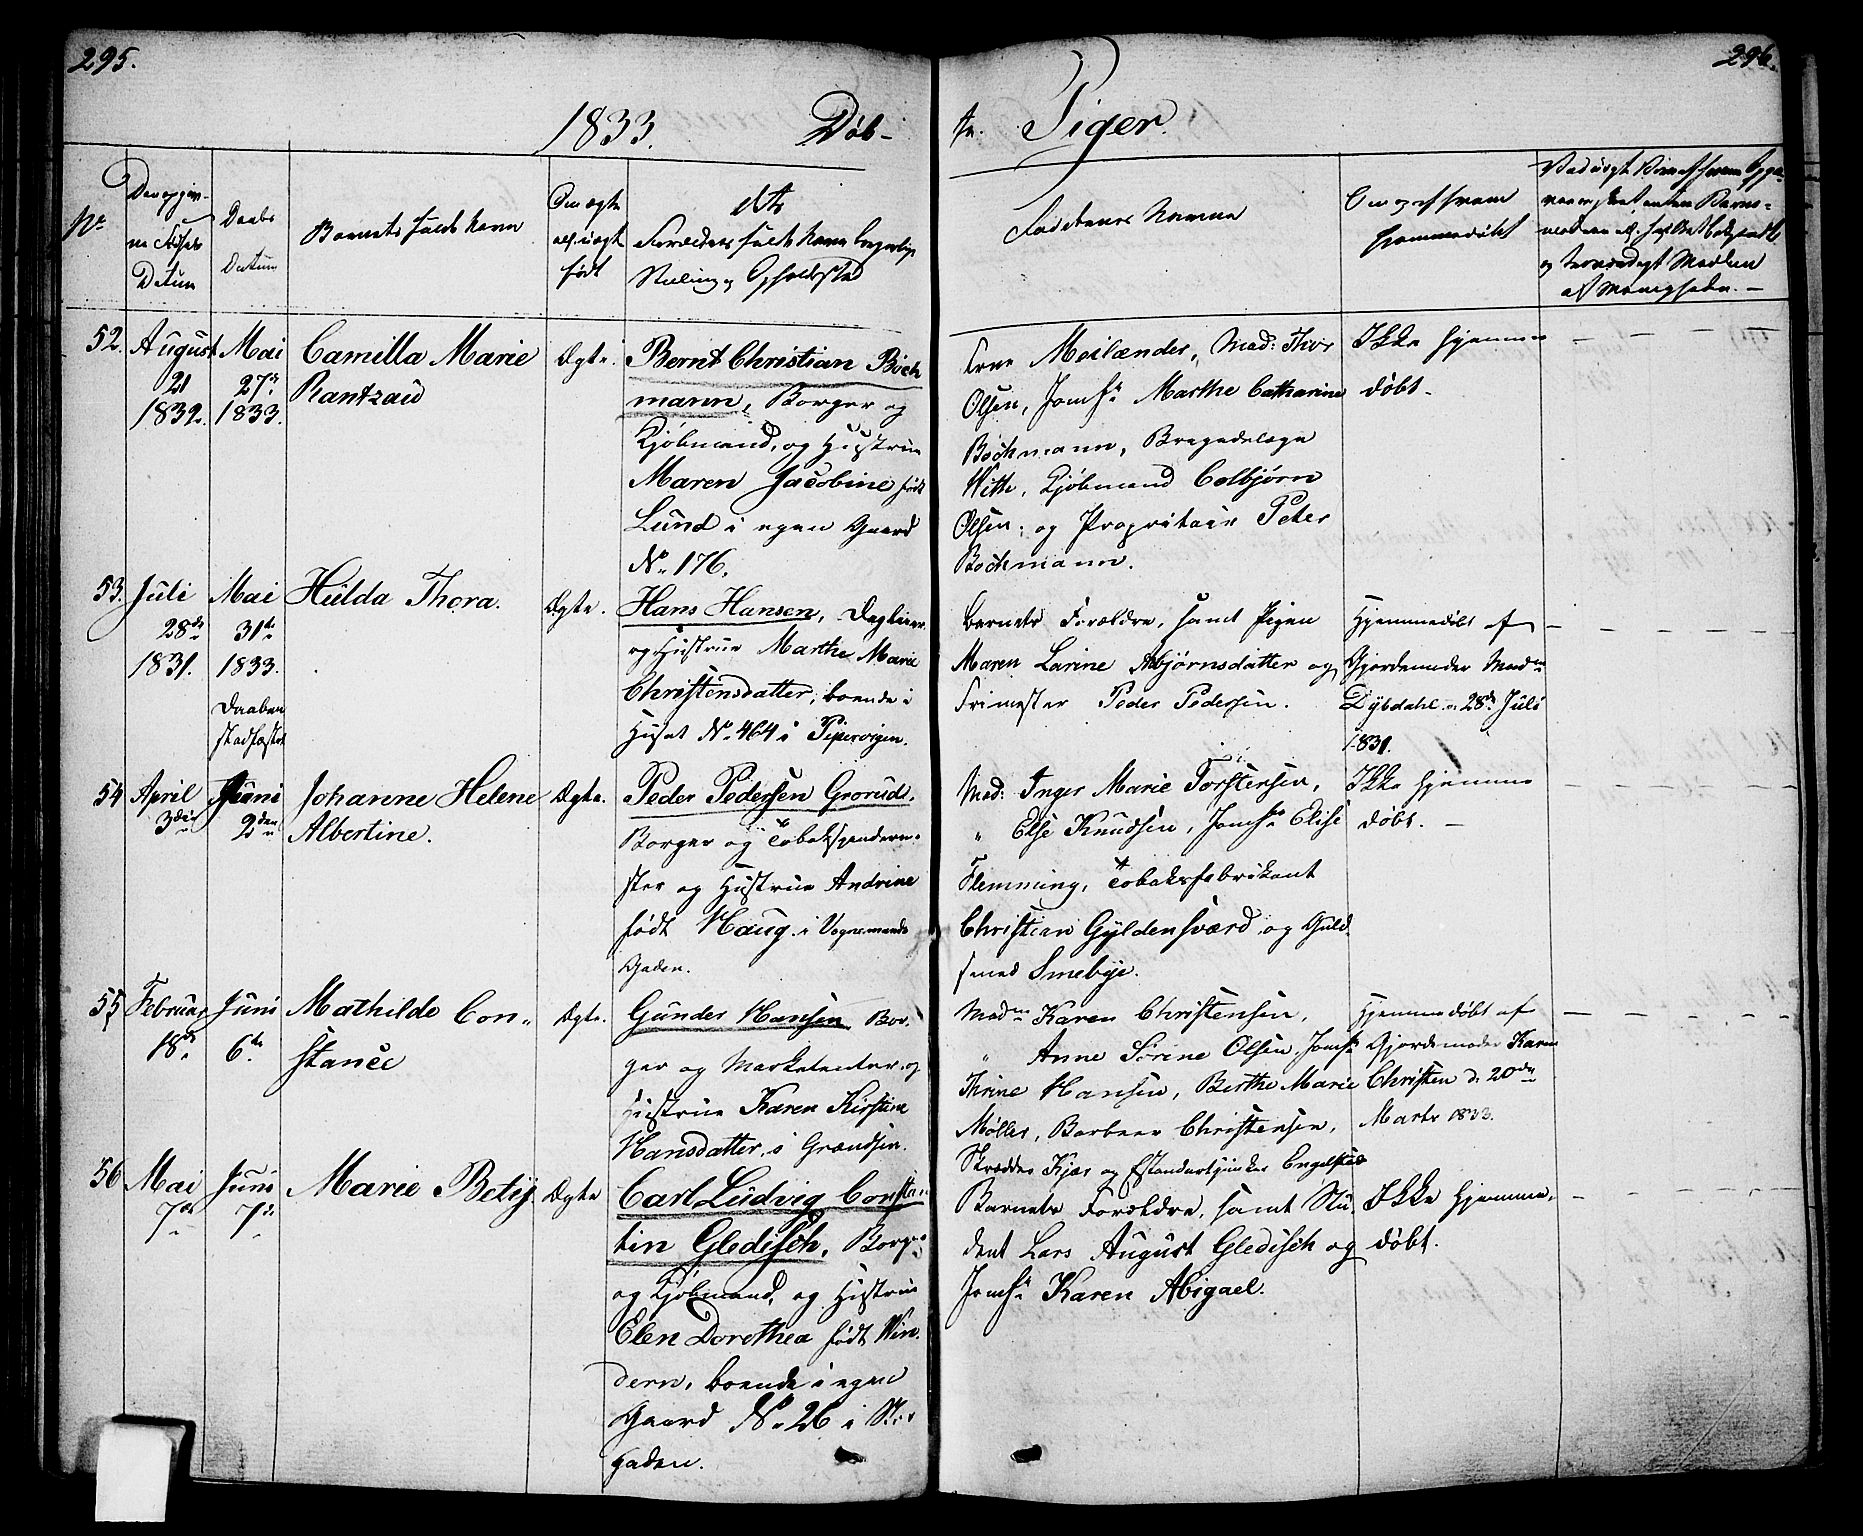 295.
296.
1833. Døb-
te. Piger.
No
Den opgiv-
ne Fødsels
Datum
Daabs
Datum
Barnets fulde Navn
Om ægte
ell. uægte
født
dets
Forældres fulde Navn borgerlige
Stilling og Opholdssted
Faddernes Navne
Om og af hvem
hjemmedøbt
52. August
21
1832.
Mai
27de
1833.
Camilla Marie
Rantzau
Ægte
Bernt Christian Böck
mann, Borger og
Kjøbmand, og Hustrue
Maren Jacobine født
Lund i egen Gaard
No 176.
Frue Meilænder, Mad: Thor
Olsen, Jomfr Marthe Catharine
Böckmann, Brigadelæge
Witth, Kjøbmand Colbjørn
Olsen, og Propritair Peter
Böckmann.
Ikke hjemme
døbt.
53. Juli
28de
1831.
Mai
31te
1833.
Daaben
stadfæstet
Hulda Thora.
Ægte.
Hans Hansen, Dagleier
og Hustrue Marthe Marie
Christensdatter, boende i
Huset No 464 i Pipervigen.
Barnets Forældre, samt Pigen
Maren Larine Abjørnsdatter og
Frimester Peder Pedersen.
Hjemmedøbt af
Gjordemoder Madm
Dybdahl 28de Juli
1831.
54 April
3die
Juni
2den
Johanne Helene
Albertine.
Ægte.
Peder Pedersen Grorud,
Borger og Tobakspinderme-
ster og Hustrue Andrine
født Haug i Vognmands
Gaden.
Mad: Inger Marie Torstensen,
" Else Knudsen, Jomfr Elise
Flemming, Tobaksfabrikant
Christian Gyldensværd og Guld-
smed Smebye.
Ikke hjemme
døbt.
55 Februar
18de
Juni
6te
Mathilde Con-
stance
Ægte.
Gunder Hansen Bor-
ger og Marketenter og
Hustrue Karen Kirstine
Hansdatter, i Grændsen.
Madm Karen Christensen,
" Anne Sørine Olsen, Jomfr
Thrine Hansen, Berthe Marie
Møller, Barbeer Christensen,
Skrædder Kjær og Estandartjunker Engelstad
Hjemmedøbt af
Gjordemoder Karen
Christen d. 20de
Marts 1833.
56 Mai
7de
Juni
7de
Marie Betsy
Ægte
Carl Ludvig Constan-
tin Gledisch, Borger
og Kjøbmand, og Hustrue
Elen Dorothea født Win-
dern, boende i egen
Gaard No 26 i Stor
gaden.
Barnets Forældre, samt Stu-
dent Lars August Gledisch og
Jomfr Karen Abigael.
Ikke hjemme-
døbt.